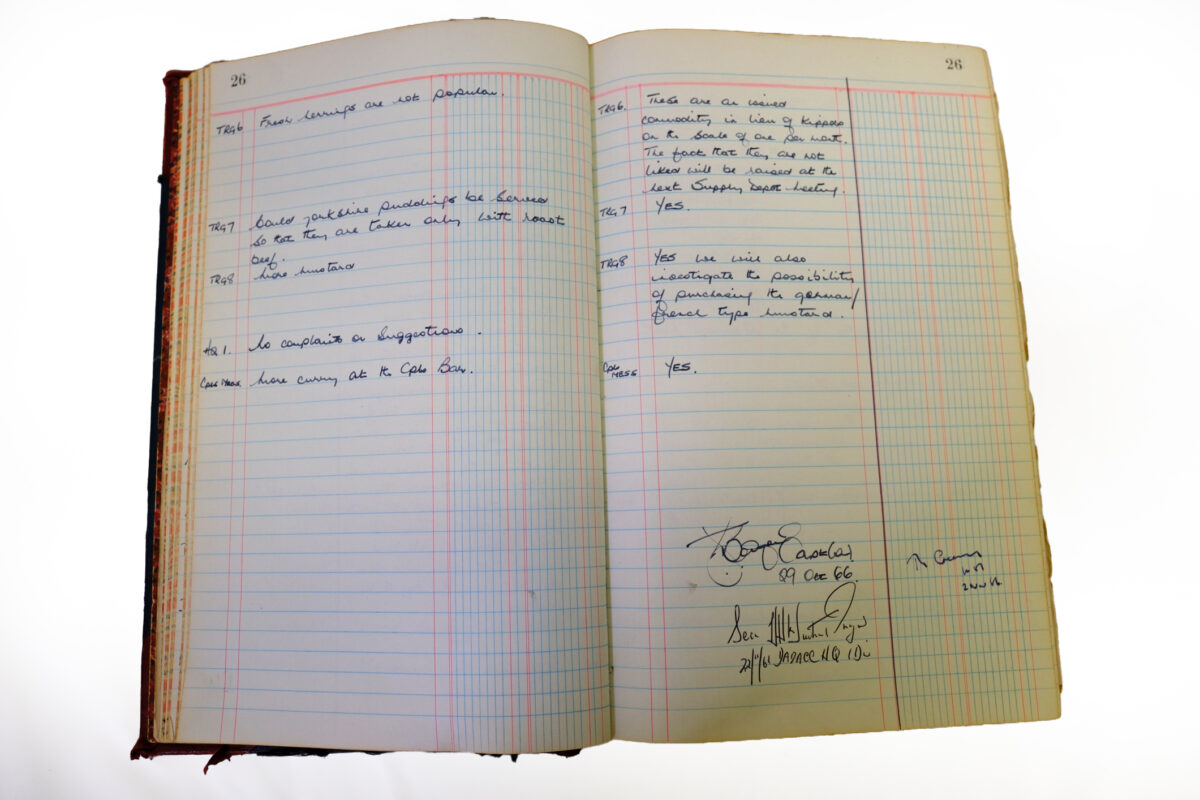 26
TRG6 Fresh herrings are not popular.
TRG7 Could yorkshire puddings be served
so that they are taken only with roast
beef.
TRG8 More mustard
HQ 1. No complaints or suggestions.
Cpls Mess. More curry at the Cpls Bar.
26
TRG6. These are an issued
commodity in lieu of kippers
on the scale of one per month.
The fact that they are not
liked will be raised at the
next Supply Depot Meeting.
TRG7 YES.
TRG8 YES we will also
investigate the possibility
of purchasing the german/
french type mustard.
Cpls
MESS YES.
Capt
29 Dec 66.
Seen
HQ 1 Div